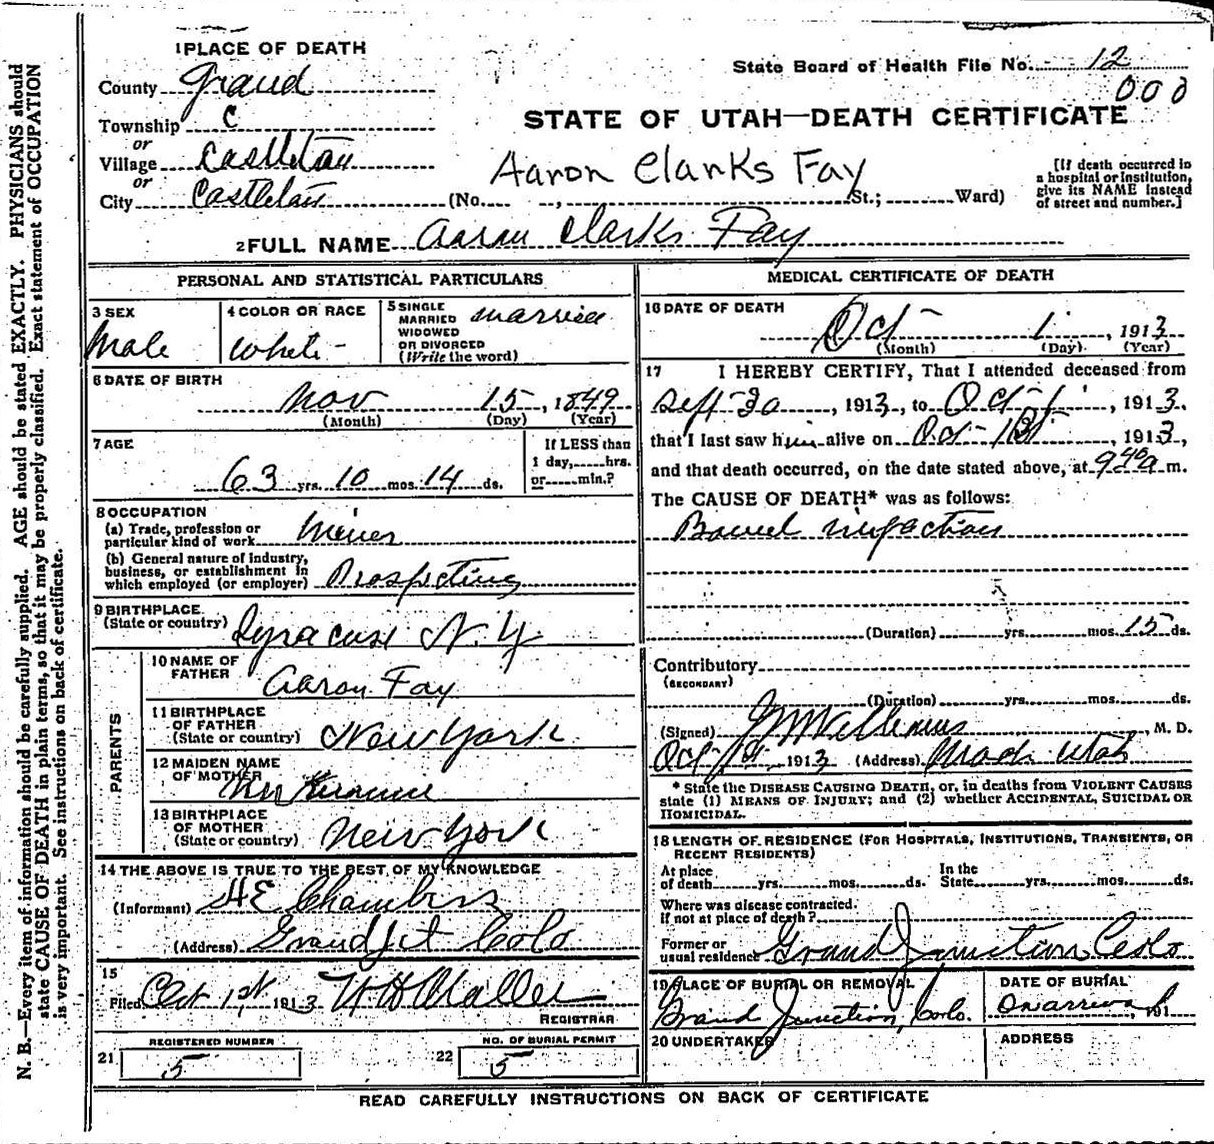 1 PLACE OF DEATH
County Grand
Township C
or
Village Castleton
or
City Castleton (No. , St.; Ward)
State Board of Health File No. 12
000
STATE OF UTAH—DEATH CERTIFICATE
Aaron Clarks Fay
[If death occurred in
a hospital or institution,
give its NAME instead
of street and number.]
2 FULL NAME Aaron Clarks Fay
PERSONAL AND STATISTICAL PARTICULARS
3 SEX
Male
4 COLOR OR RACE
White
5 SINGLE
MARRIED
WIDOWED
OR DIVORCED
(Write the word)
married
6 DATE OF BIRTH
Nov 15, 1849
(Month) (Day) (Year)
7 AGE
63 yrs. 10 mos. 14 ds.
If LESS than
1 day, hrs.
or min.?
8 OCCUPATION
(a) Trade, profession or
particular kind of work Miner
(b) General nature of industry,
business, or establishment in
which employed (or employer) Prospecting
9 BIRTHPLACE
(State or country) Syracuse N.Y
PARENTS
10 NAME OF
FATHER
Aaron Fay
11 BIRTHPLACE
OF FATHER
(State or country) New York
12 MAIDEN NAME
OF MOTHER
13 BIRTHPLACE
OF MOTHER
(State or country) New York
14 THE ABOVE IS TRUE TO THE BEST OF MY KNOWLEDGE
(Informant) H E Chambers
(Address) Grand Jct Colo
15
Filed Oct 1st 1913 
REGISTRAR
REGISTERED NUMBER
21 5
NO. OF BURIAL PERMIT
22 5
MEDICAL CERTIFICATE OF DEATH
16 DATE OF DEATH
Oct 1, 1913
(Month) (Day) (Year)
17 I HEREBY CERTIFY, That I attended deceased from
Sept 30, 1913, to Oct 1, 1913.
that I last saw him alive on Oct 1st, 1913,
and that death occurred, on the date stated above, at 9 40 a m.
The CAUSE OF DEATH* was as follows:
Bowel
(Duration) yrs. mos. 15 ds.
Contributory
(SECONDARY)
(Duration) yrs. mos. ds.
(Signed) J W Williams, M. D.
Oct 1st 1913 (Address) Moab Utah
* State the DISEASE CAUSING DEATH, or, in deaths from VIOLENT CAUSES
state (1) MEANS OF INJURY; and (2) whether ACCIDENTAL, SUICIDAL OR
HOMICIDAL.
18 LENGTH OF RESIDENCE (FOR HOSPITALS, INSTITUTIONS, TRANSIENTS, OR
RECENT RESIDENTS)
At place In the
of death yrs. mos. ds. State yrs. mos. ds.
Where was disease contracted.
if not at place of death?
Former or
usual residence Grand Junction Colo
19 PLACE OF BURIAL OR REMOVAL
Grand Junction, Colo.
DATE OF BURIAL
On arrival, 191
20 UNDERTAKER
ADDRESS
READ CAREFULLY INSTRUCTIONS ON BACK OF CERTIFICATE
N. B.—Every item of information should be carefully supplied. AGE should be stated EXACTLY. PHYSICIANS should
state CAUSE OF DEATH in plain terms, so that it may be properly classified. Exact statement of OCCUPATION
is very important. See instructions on back of certificate.